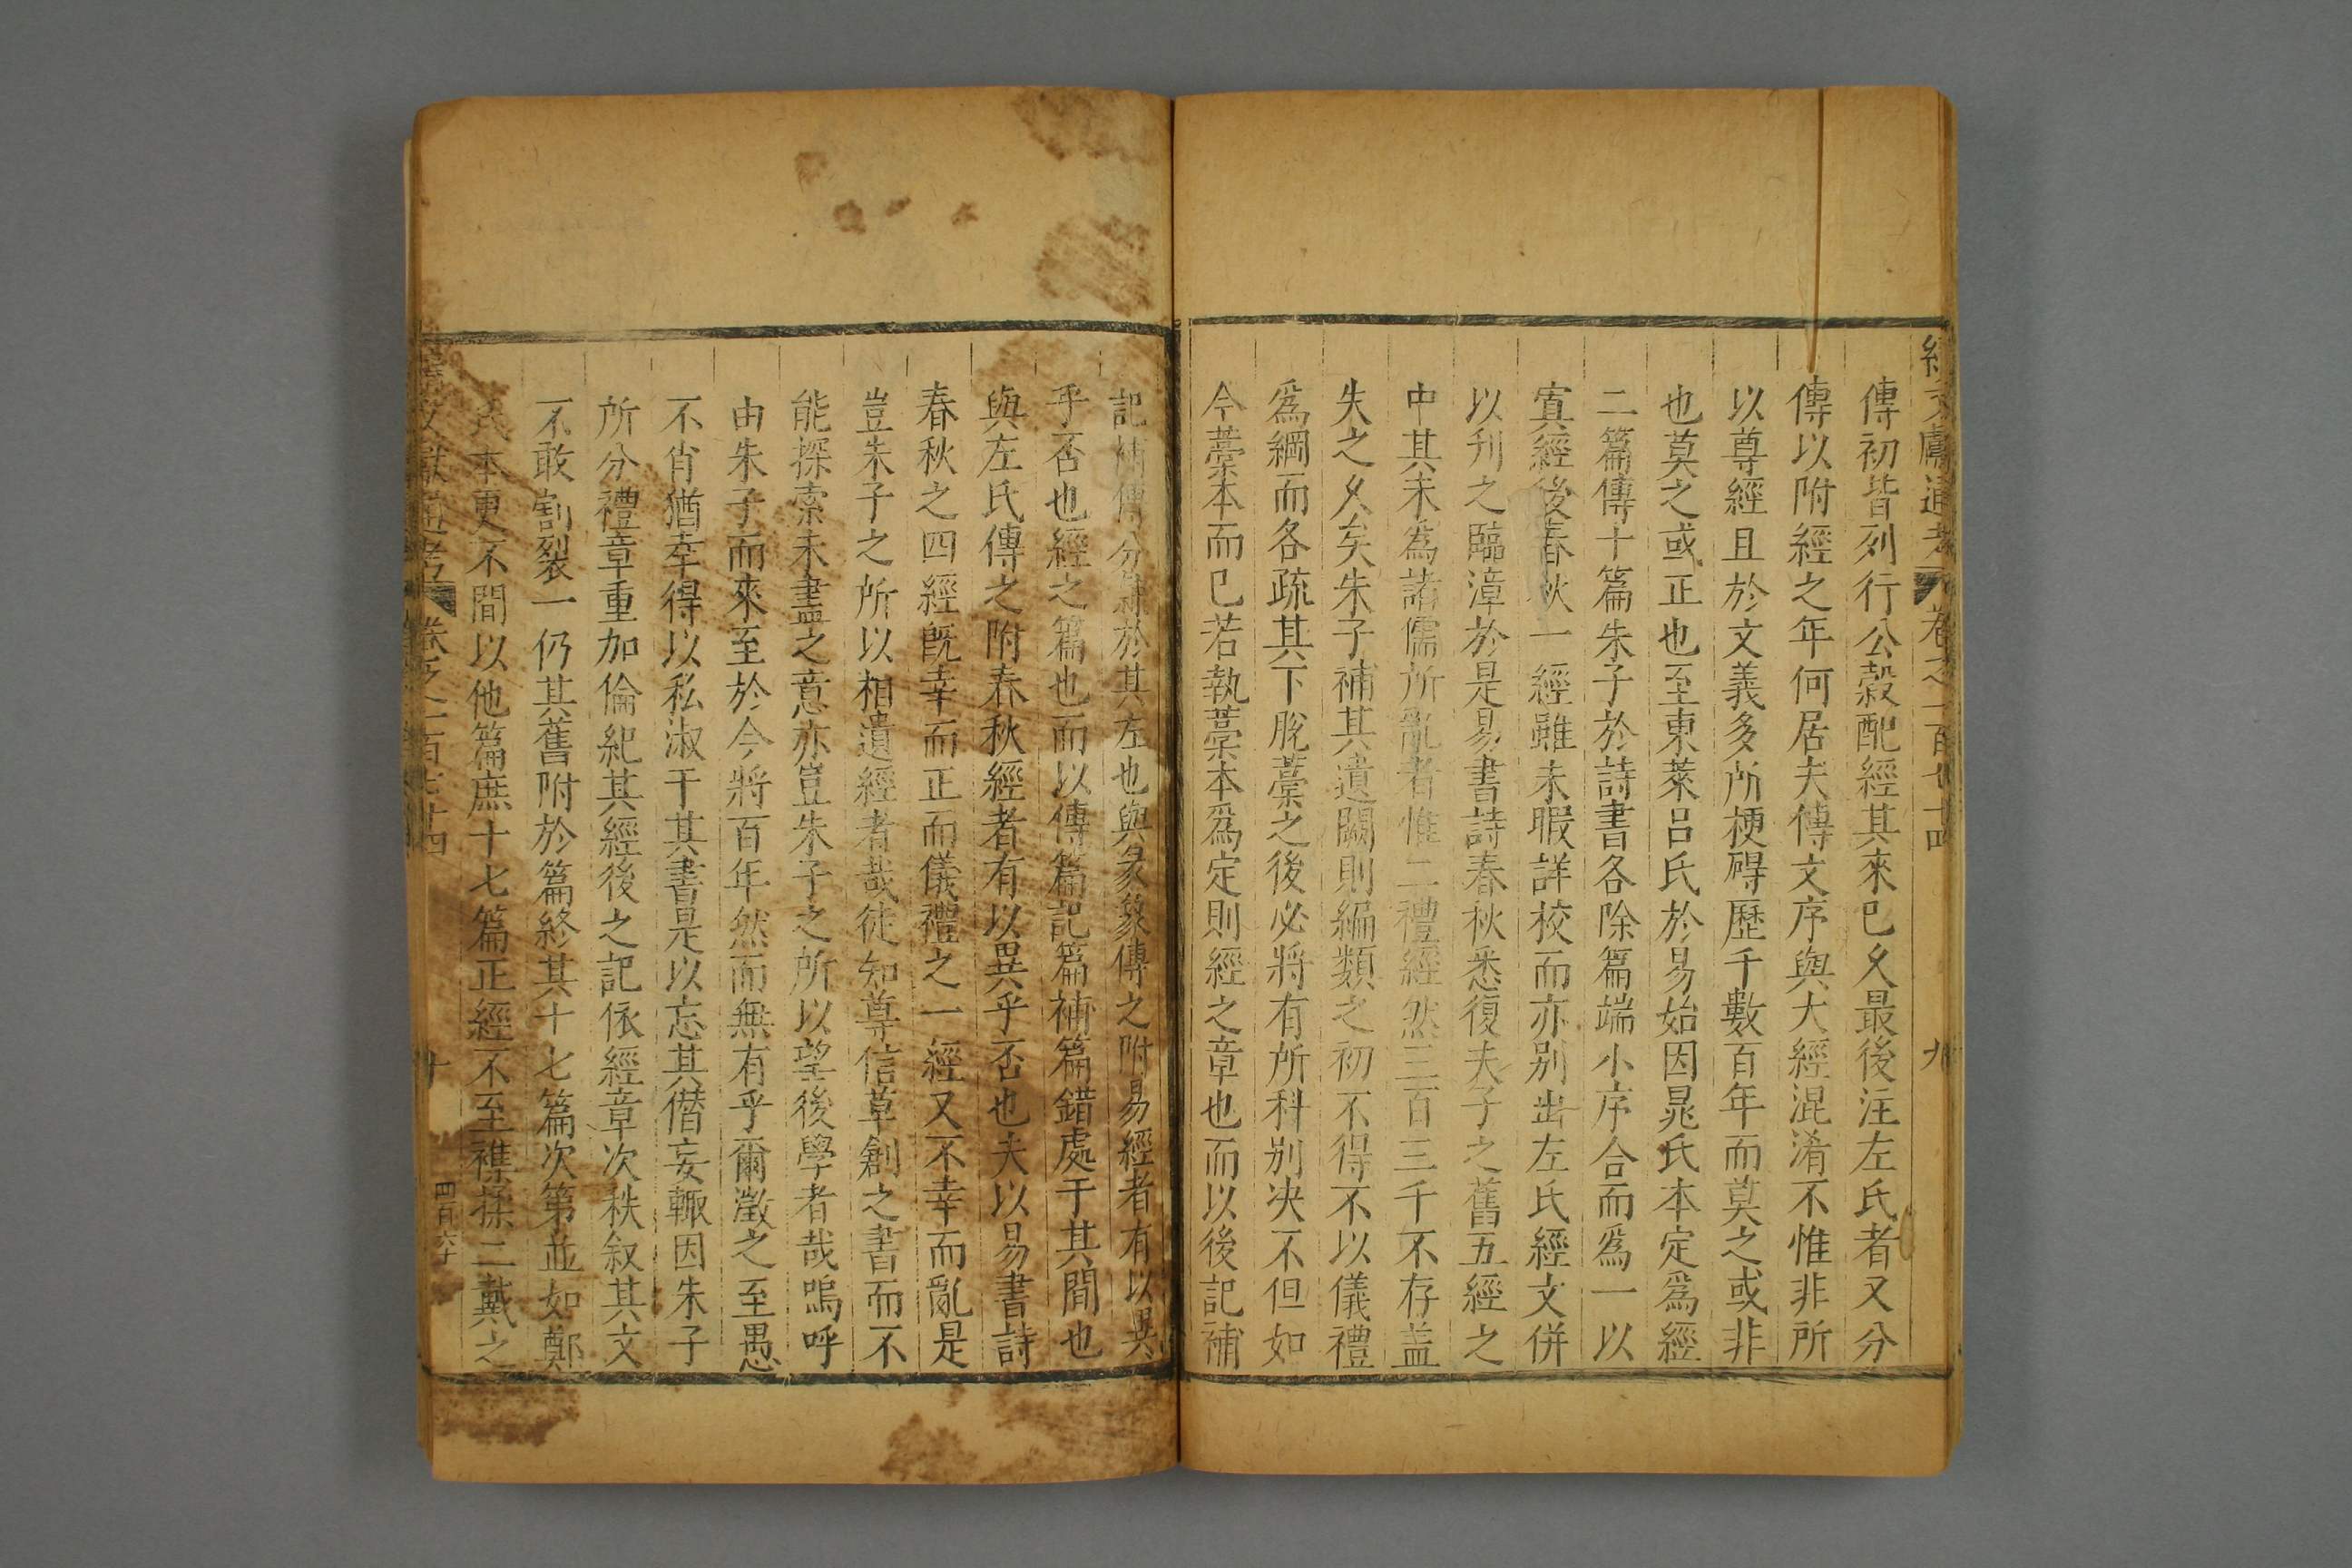 續文獻通考 卷之一百七十四 九
傳初皆列行公穀配經其來巳乆最後注左氏者又分
傳以附經之年何居夫傳文序與大經混淆不惟非所
以尊經且於文義多所梗碍歷千數百年而莫之或非
也莫之或正也至東萊吕氏於易始因晁氏本定爲經
二篇傳十篇朱子於詩書各除篇端小序合而爲一以
寘經後春秋一經雖未暇詳校而亦别出左氏經文併
以刋之臨漳於是易書詩春秋悉復夫子之舊五經之
中其未為諸儒所亂者惟二禮經然三百三千不存盖
失之乆矣朱子補其遺闕則編類之初不得不以儀禮
爲綱而各疏其下脫藁之後必將有所科别决不但如
今藁本而巳若執藁本爲定則經之章也而以後記補
記補傳分𨽻於其左也與彖象傳之附易經者有以異
乎否也經之篇也而以傳篇記篇補篇錯處于其間也
與左氏傳之附春秋經者有以異乎否也夫以易書詩
春秋之四經旣幸而正而儀禮之一經又不幸而亂是
豈朱子之所以相遺經者哉徒知尊信草創之書而不
能探索未盡之意亦豈朱子之所以望後學者哉嗚呼
由朱子而來至於今將百年然而無有乎爾澂之至愚
不肖猶幸得以私淑于其書是以忘其僭妄輙因朱子
所分禮章重加倫紀其經後之記依經章次秩叙其文
不敢割裂一仍其舊附於篇終其十七篇次第並如鄭
氏本更不間以他篇庶十七篇正經不至襍揉二戴之
續文獻通考 卷之一百七十四 十 四百六十